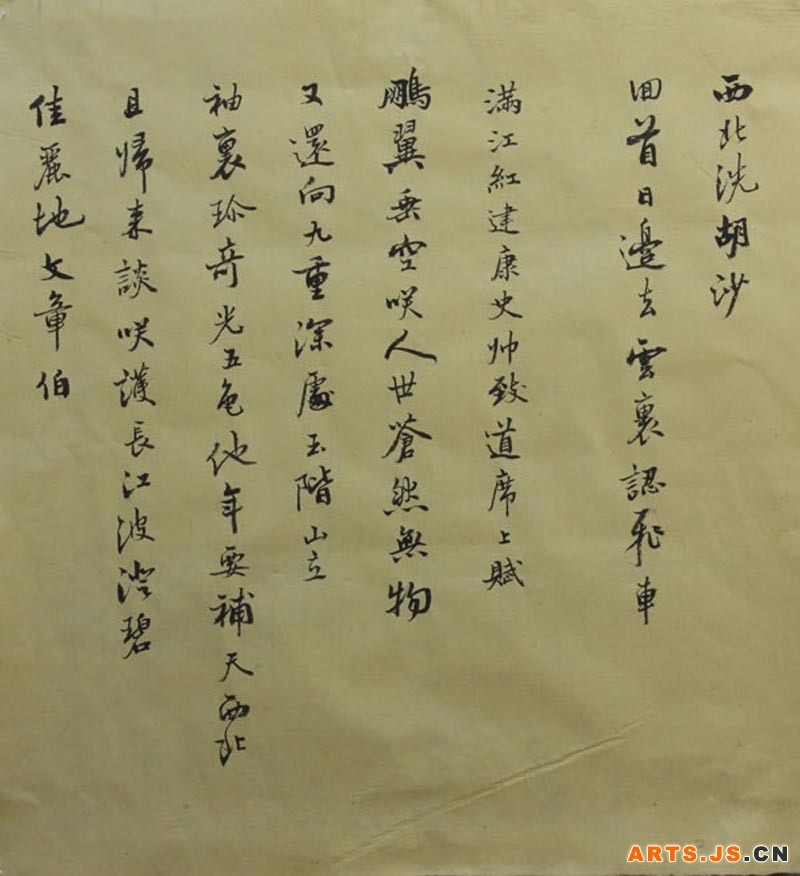 西北洗胡沙
回首日邊去雲裏認飛車
滿江紅建康史帅致道席上賦
鵬翼垂空咲人世蒼然無物
又還向九重深處玉階山立
袖裏珍奇光五色他年要補天西北
且歸来談咲護長江波澄碧
佳麗地文章伯
ARTS.JS.CN